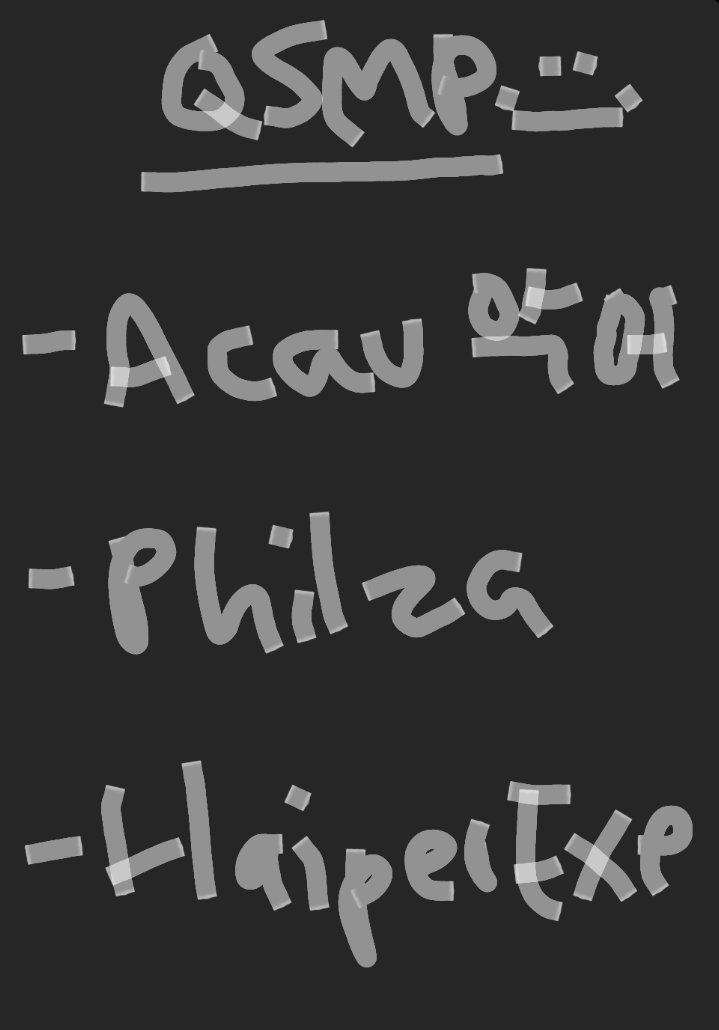 QSMP
- Acau 악어
- Philza
- HaiperExe